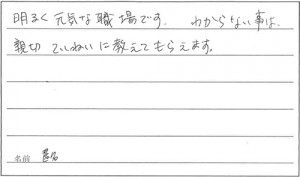 明るく元気な職場です。 わからない事は、
親切ていねいに教えてもらえます。
名前 匿名